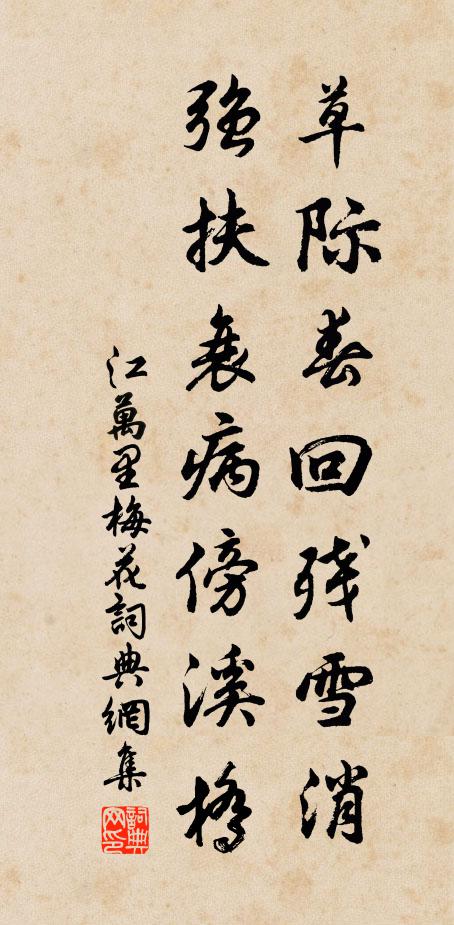 草际春回残雪消
强扶衰病傍溪桥
江萬里梅花詞典網集
詞典网印